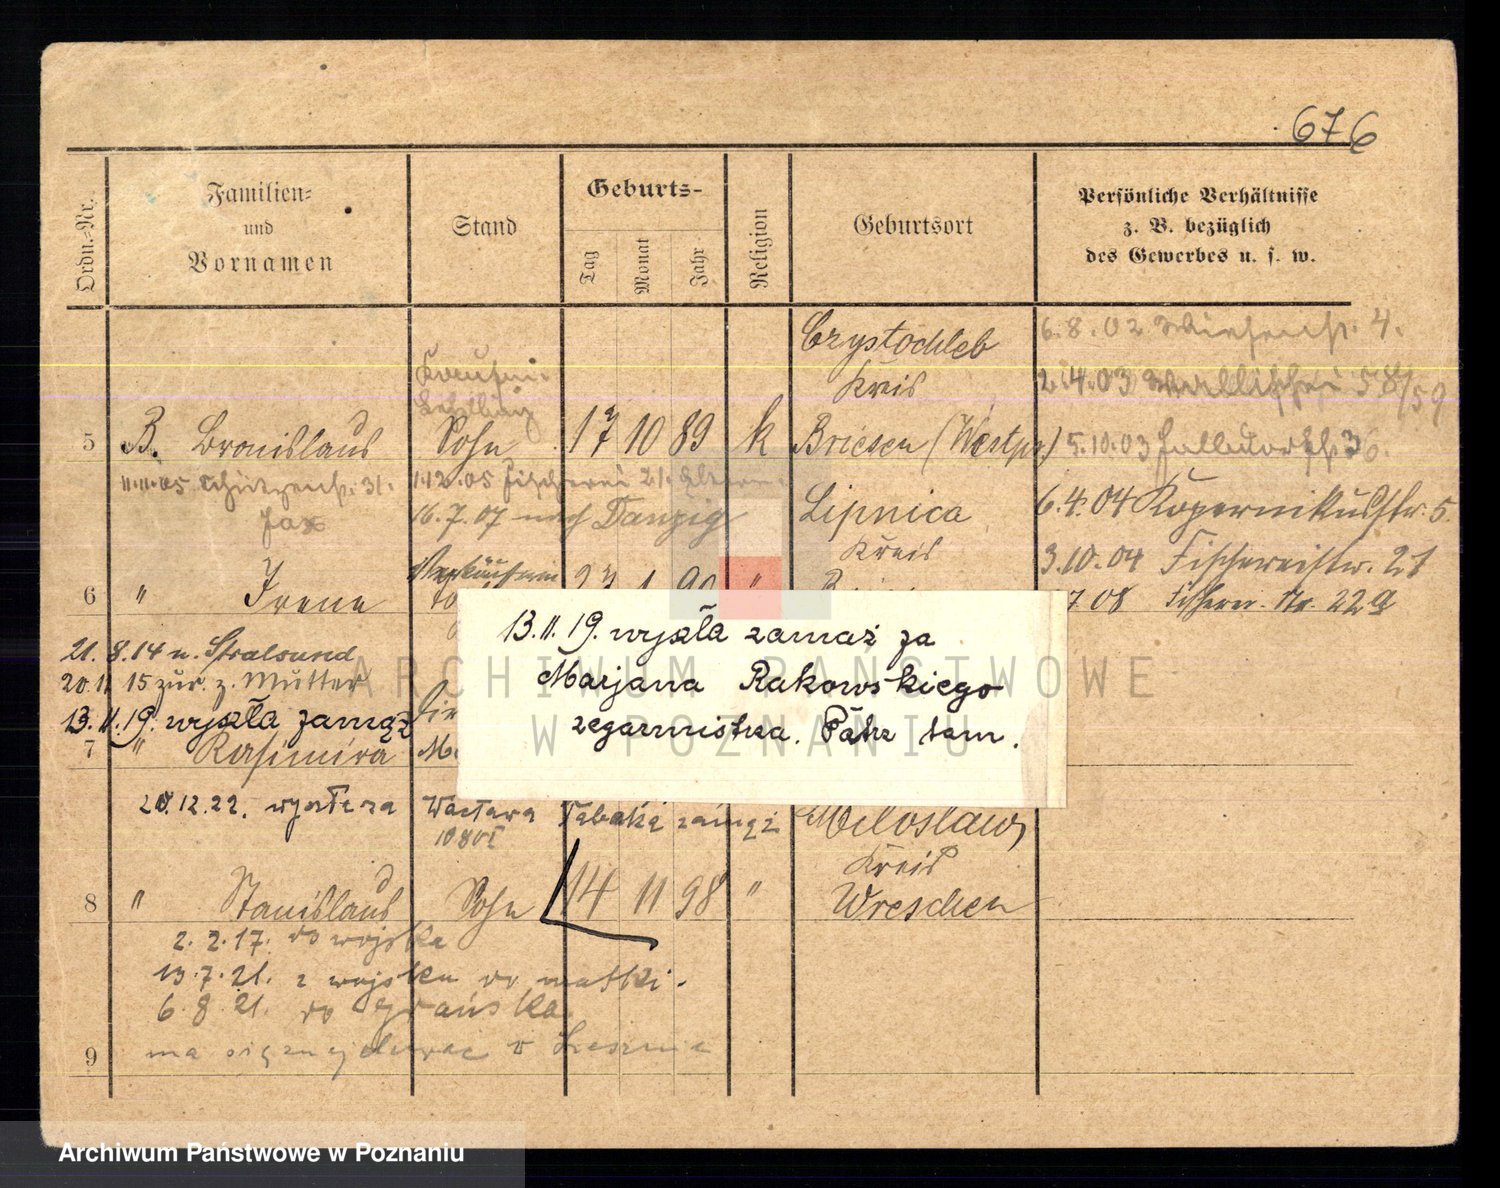 676
Ordn.-Nr.
Familien-
und
Vornamen
Stand
Geburts-
Tag
Monat
Jahr
Religion
Geburtsort
Persönliche Verhältnisse
z. B. bezüglich
des Gewerbes u. s. w.
Crystochleb
6.8.02 4.
Kreis
2.4.03 58/59
5 B. Bronislaus Sohn 17 10 89 k Briesen (Westpr.) 5.10.03 36.
11.11.05 Schützenstr. 31. 1.12.05 Fischerei 21.
16.7.07 nach Danzig Lipnica 6.4.04 Kopernikusstr. 5.
Kreis 3.10.04 Fischereistr. 21
6 " Irene 7.08 22a
21.8.14 n. Stralsund
20.11.15 zur. z. Mutter
13.11.19. wyszła zamąż
7 " Kasimira
13.11.19. wyszła zamaż za
Marjana Rakowskiego
zegarmistrza. Patrz tam.
20.12.22. wyszła za Wacława zamąż Miloslaw
Kreis
8 " Stanislaus Sohn 14 11 98 " Wreschen
2.2.17. do wojska
13.7.21. z wojska do matki.
6.8.21. do Gdańska.
9
ARCHIWUM PAŃSTWOWE
W POZNANIU
Archiwum Państwowe w Poznaniu